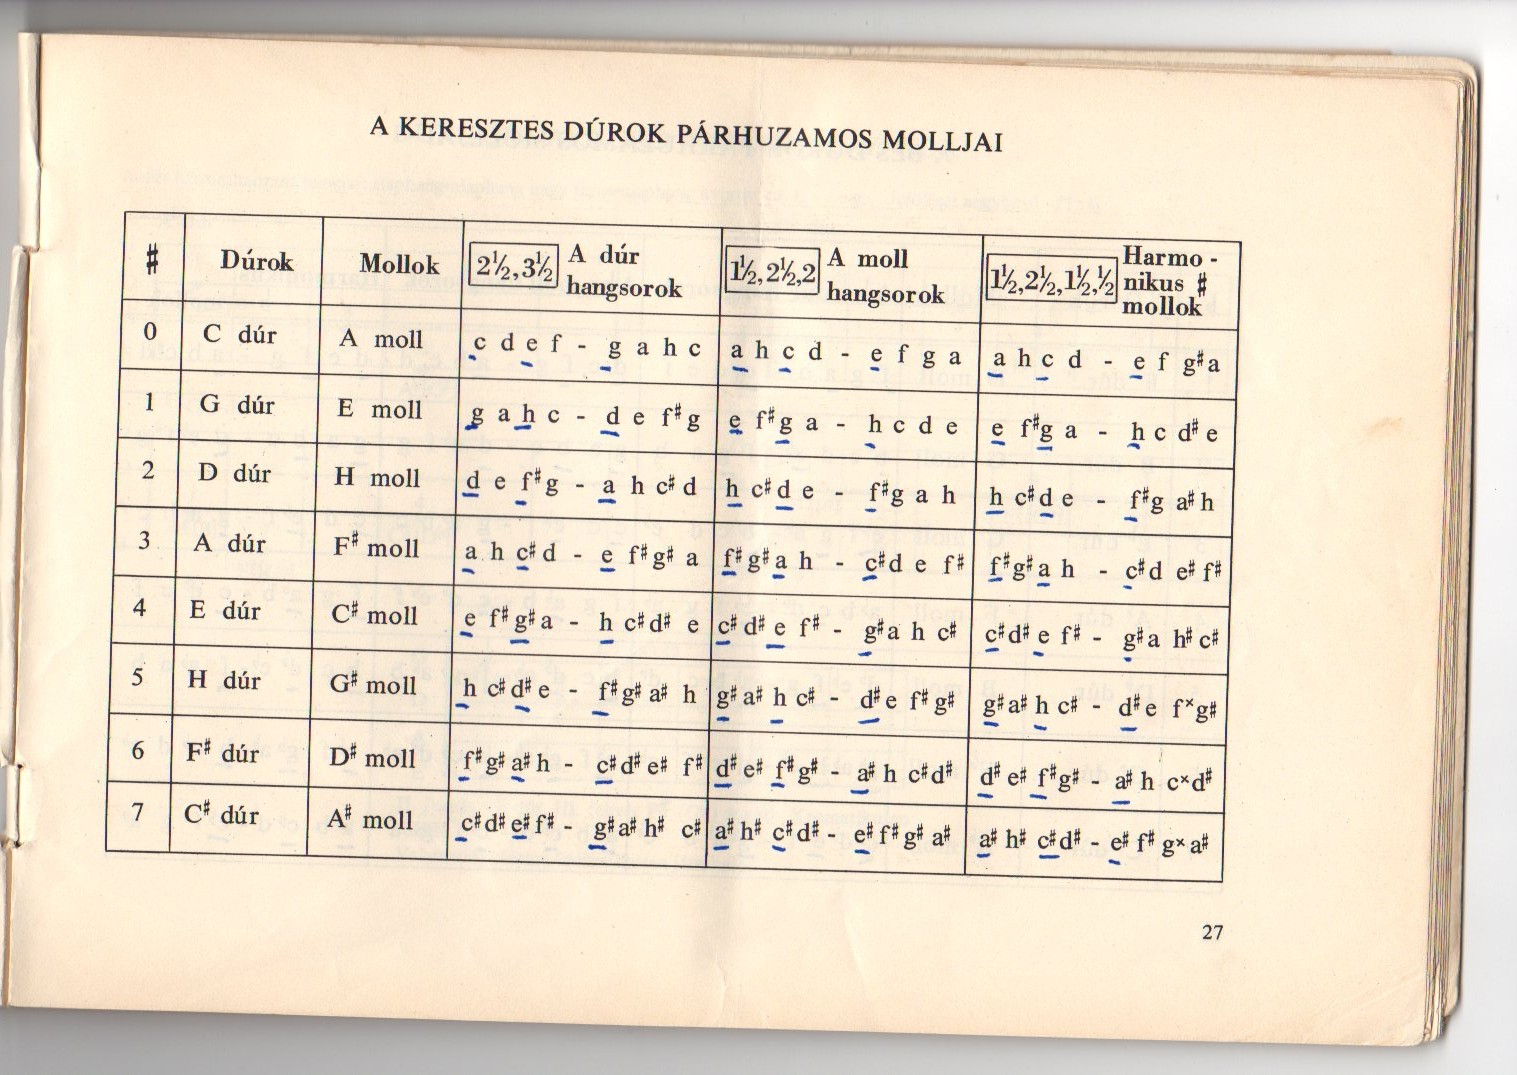 A KERESZTES DÚROK PÁRHUZAMOS MOLLJAI
♯ Dúrok Mollok 2½,3½ A dúr hangsorok 1½,2½,2 A moll hangsorok 1½,2½,1½,½ Harmo - nikus ♯ mollok
0 C dúr A moll c d e f - g a h c a h c d - e f g a a h c d - e f g♯a
1 G dúr E moll g a h c - d e f♯g e f♯g a - h c d e e f♯g a - h c d♯ e
2 D dúr H moll d e f♯g - a h c♯d h c♯d e - f♯g a h h c♯d e - f♯g a♯h
3 A dúr F♯ moll a h c♯d - e f♯g♯ a f♯g♯a h - c♯d e f♯ f♯g♯a h - c♯d e♯f♯
4 E dúr C♯ moll e f♯g♯a - h c♯d♯ e c♯d♯e f♯ - g♯a h c♯ c♯d♯e f♯ - g♯a h♯c♯
5 H dúr G♯ moll h c♯d♯e - f♯g♯a♯ h g♯a♯h c♯ - d♯e f♯g♯ g♯a♯h c♯ - d♯e fˣg♯
6 F♯ dúr D♯ moll f♯g♯a♯h - c♯d♯e♯ f♯ d♯e♯ f♯g♯ - a♯ h c♯d♯ d♯ e♯ f♯g♯ - a♯ h cˣd♯
7 C♯ dúr A♯ moll c♯d♯e♯f♯ - g♯a♯h♯ c♯ a♯h♯ c♯d♯ - e♯f♯g♯ a♯ a♯ h♯ c♯d♯ - e♯ f♯ gˣa♯
27